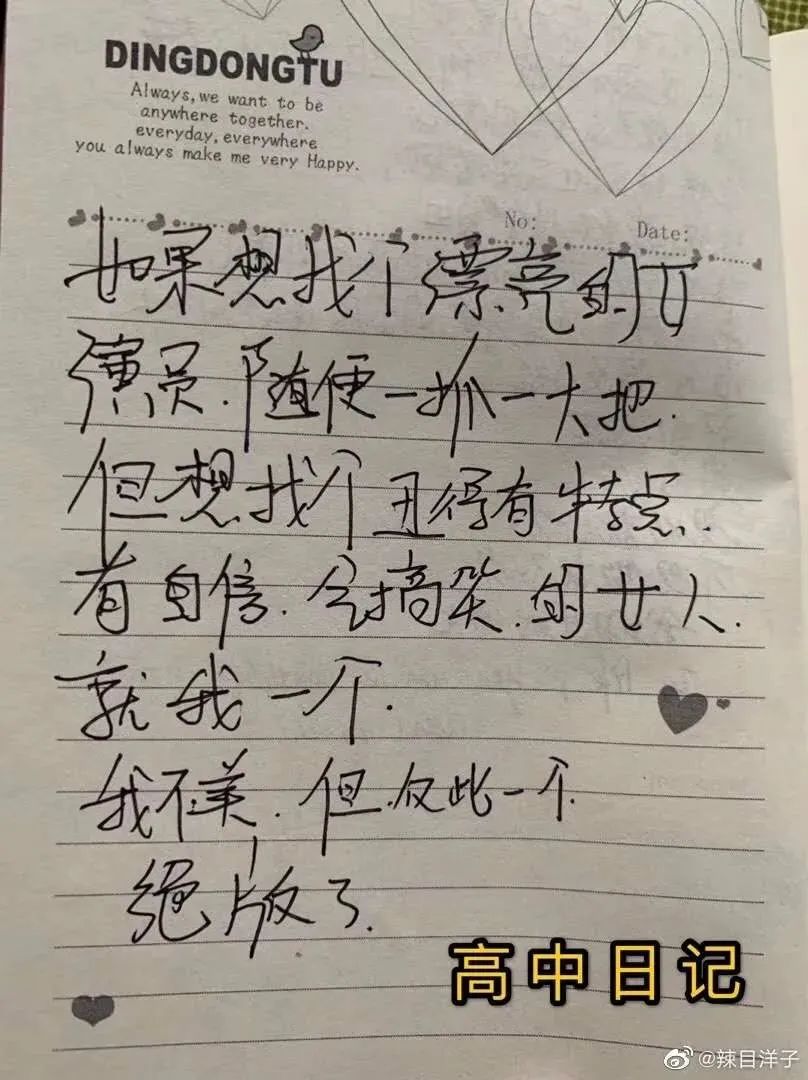 DINGDONGTU
Always,we want to be
anywhere together.
everyday,everywhere
you always make me very Happy.
No:
Date:
如果想找个漂亮的女
演员.随便一抓一大把.
但想找个丑得有特点.
有自信.会搞笑.的女人.
就我一个.
我不美.但.仅此一个.
绝版了.
高中日记
@辣目洋子